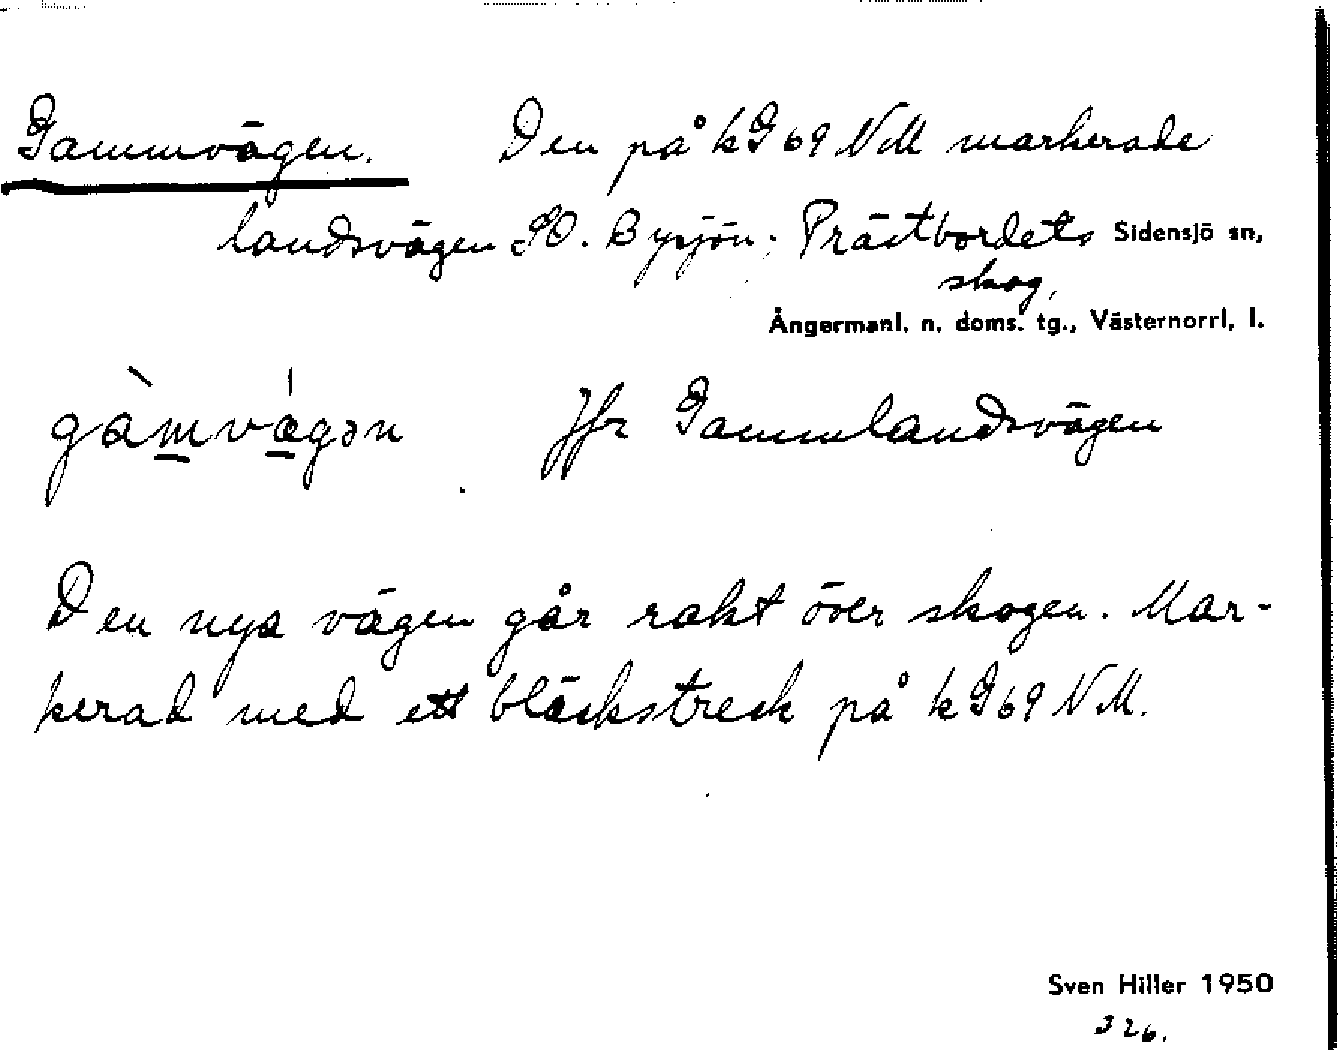 Gammvägen. Den på kG69 NM markerade
landsvägen SO. Bysjön; Prästbordets Sidensjö sn,
skog,
Ångermanl. n. doms. tg., Västernorrl, l.
gàmvágən Jfr Gammlandsvägen
Den nya vägen går rakt över skogen. Mar-
kerad med ett bläckstreck på kG69 NM.
Sven Hiller 1950
326.